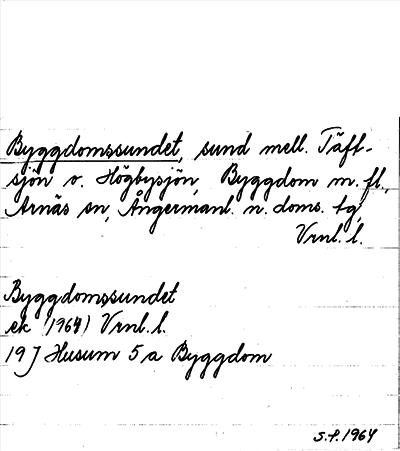 Byggdomssundet, sund mell. Täft-
sjön o. Högbysjön, Byggdom m. fl.,
Arnäs sn, Ångermanl. n. doms. tg,
Vrnl. l.
Byggdomssundet
ek (1964) Vrnl. l.
19 J Husum 5 a Byggdom
S.F. 1964